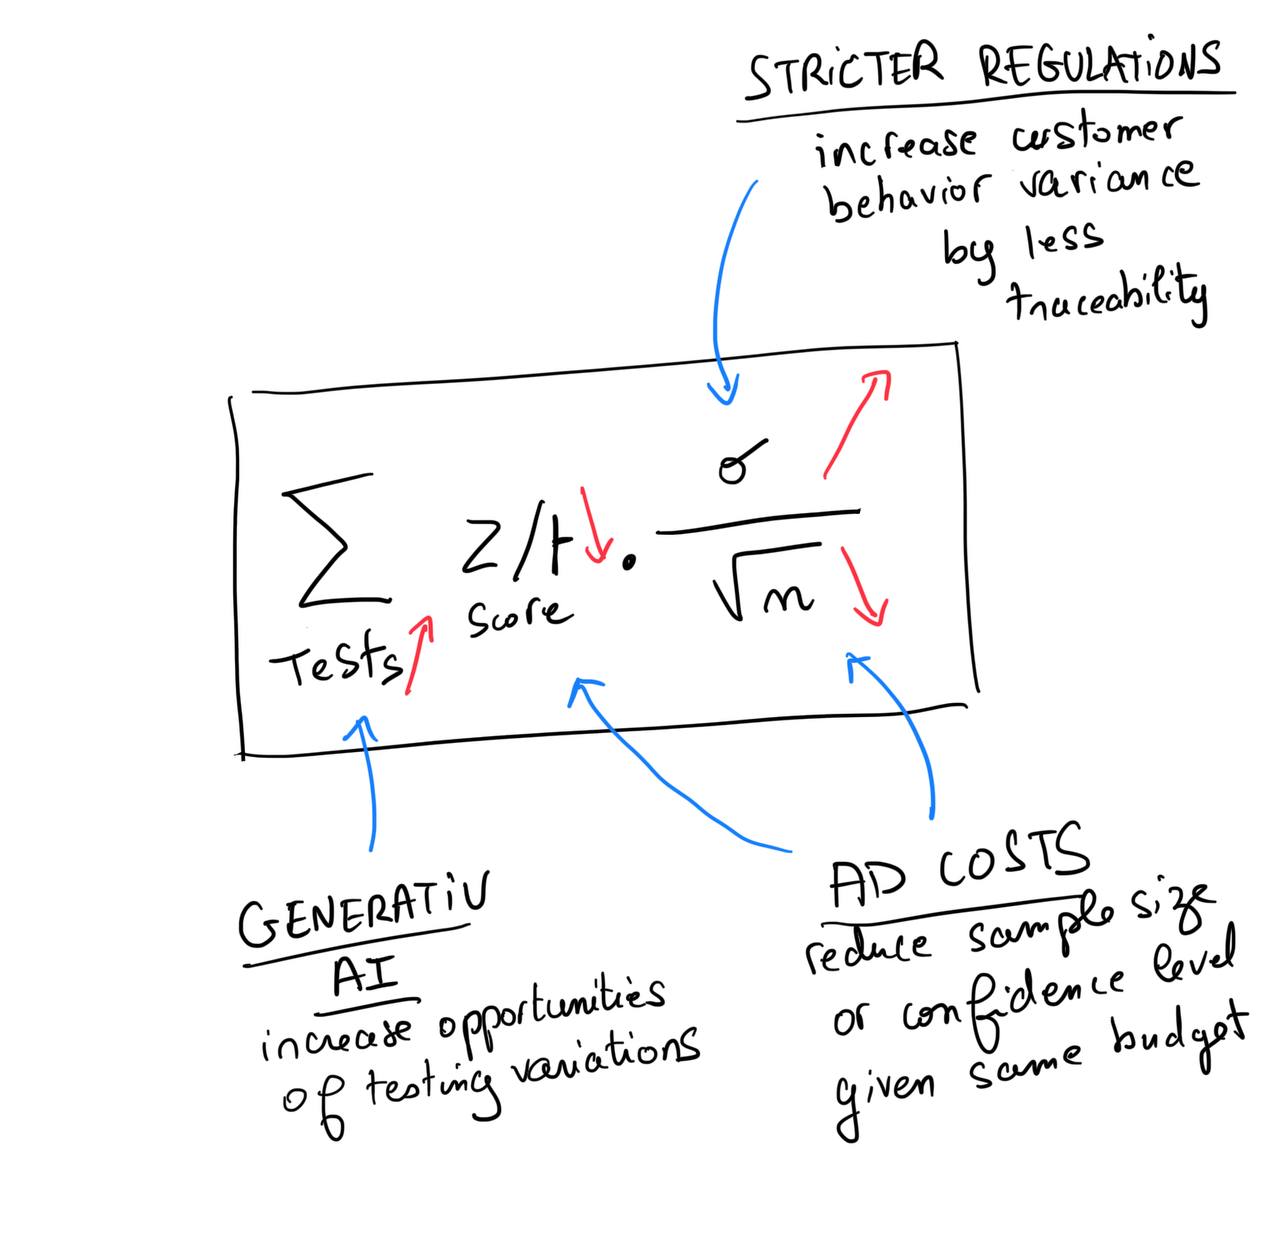 STRICTER REGULATIONS
increase customer
behavior variance
by less
traceability
σ
∑ Z/t .
√n
Score
Tests
GENERATIV
AI
increase opportunities
of testing variations
AD COSTS
reduce sample size
or confidence level
given same budget